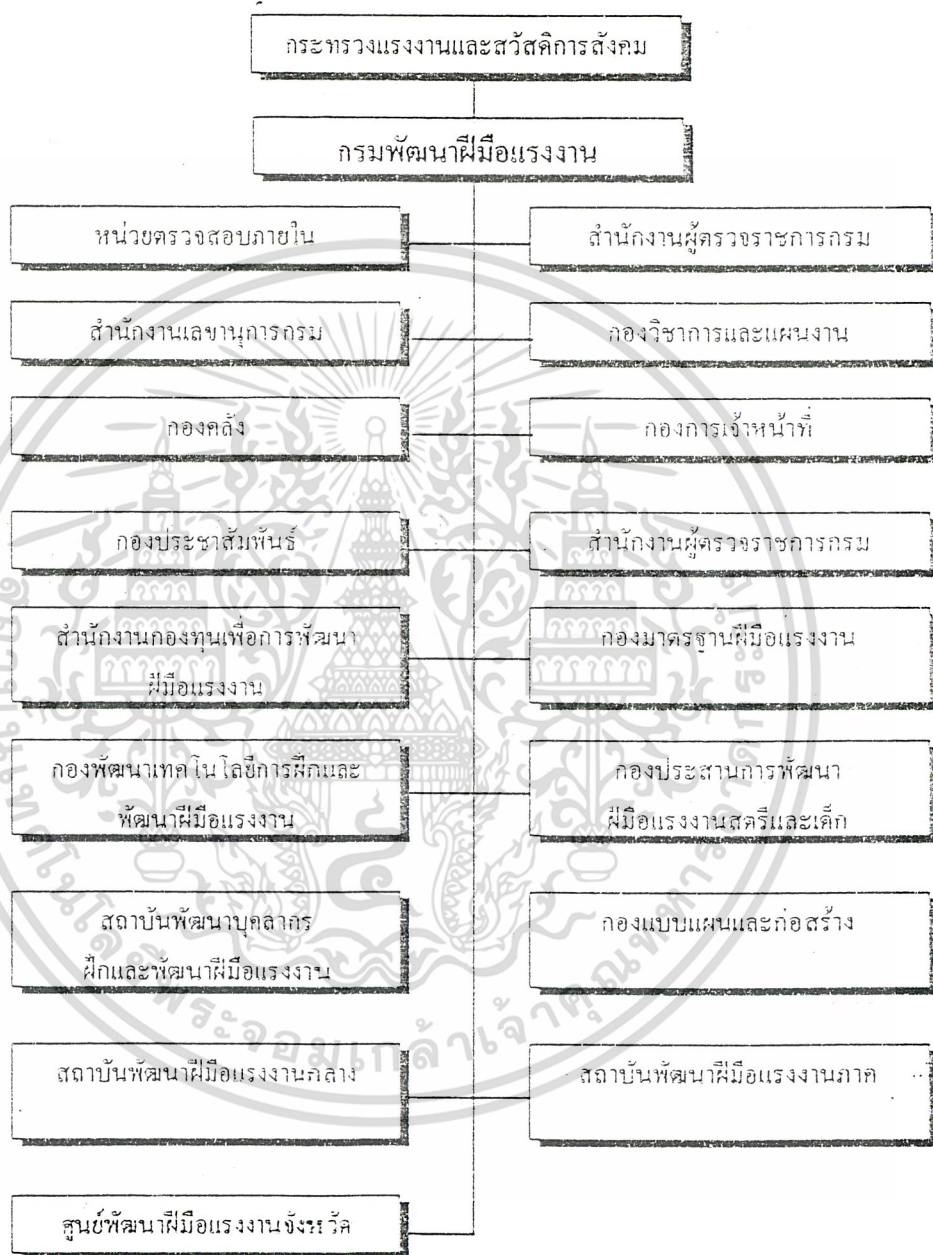 กระทรวงแรงงานและสวัสดิการสังคม
กรมพัฒนาฝีมือแรงงาน
หน่วยตรวจสอบภายใน
สำนักงานผู้ตรวจราชการกรม
สำนักงานเลขานุการกรม
กองวิชาการและแผนงาน
กองคลัง
กองการเจ้าหน้าที่
กองประชาสัมพันธ์
สำนักงานผู้ตรวจราชการกรม
สำนักงานกองทุนเพื่อการพัฒนา
ฝีมือแรงงาน
กองมาตรฐานฝีมือแรงงาน
กองพัฒนาเทคโนโลยีการฝึกและ
พัฒนาฝีมือแรงงาน
กองประสานการพัฒนา
ฝีมือแรงงานสตรีและเด็ก
สถาบันพัฒนาบุคลากร
ฝึกและพัฒนาฝีมือแรงงาน
กองแบบแผนและก่อสร้าง
สถาบันพัฒนาฝีมือแรงงานกลาง
สถาบันพัฒนาฝีมือแรงงานภาค
ศูนย์พัฒนาฝีมือแรงงานจังหวัด
พระจอมเกล้าเจ้าคุณทหาร